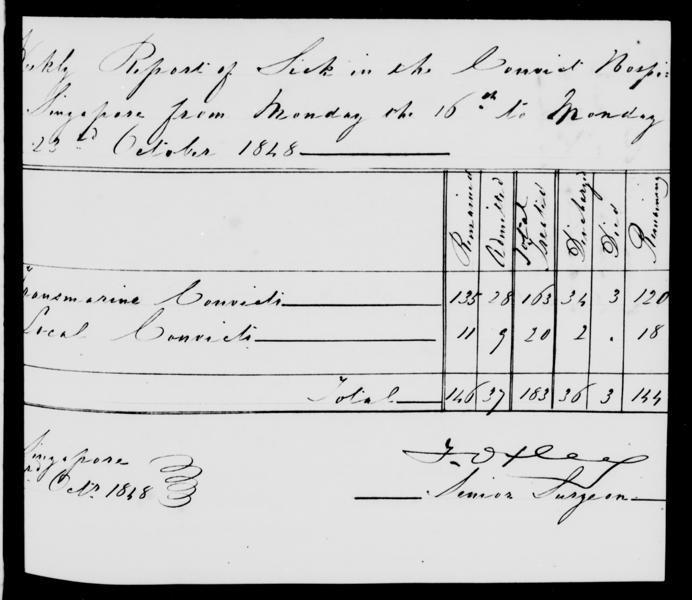 Weekly Report of Sick in the Convict Hospi-
Singapore from Monday the 16th to Monday
23rd October 1848
Remained Admitted Total Treated Discharged Died Remaining
Transmarine Convicts 135 28 163 34 3 120
Local Convicts 11 9 20 2 . 18
Total 146 37 183 36 3 144
Singapore
rd Octr. 1848
T. Oxley
Senior Surgeon